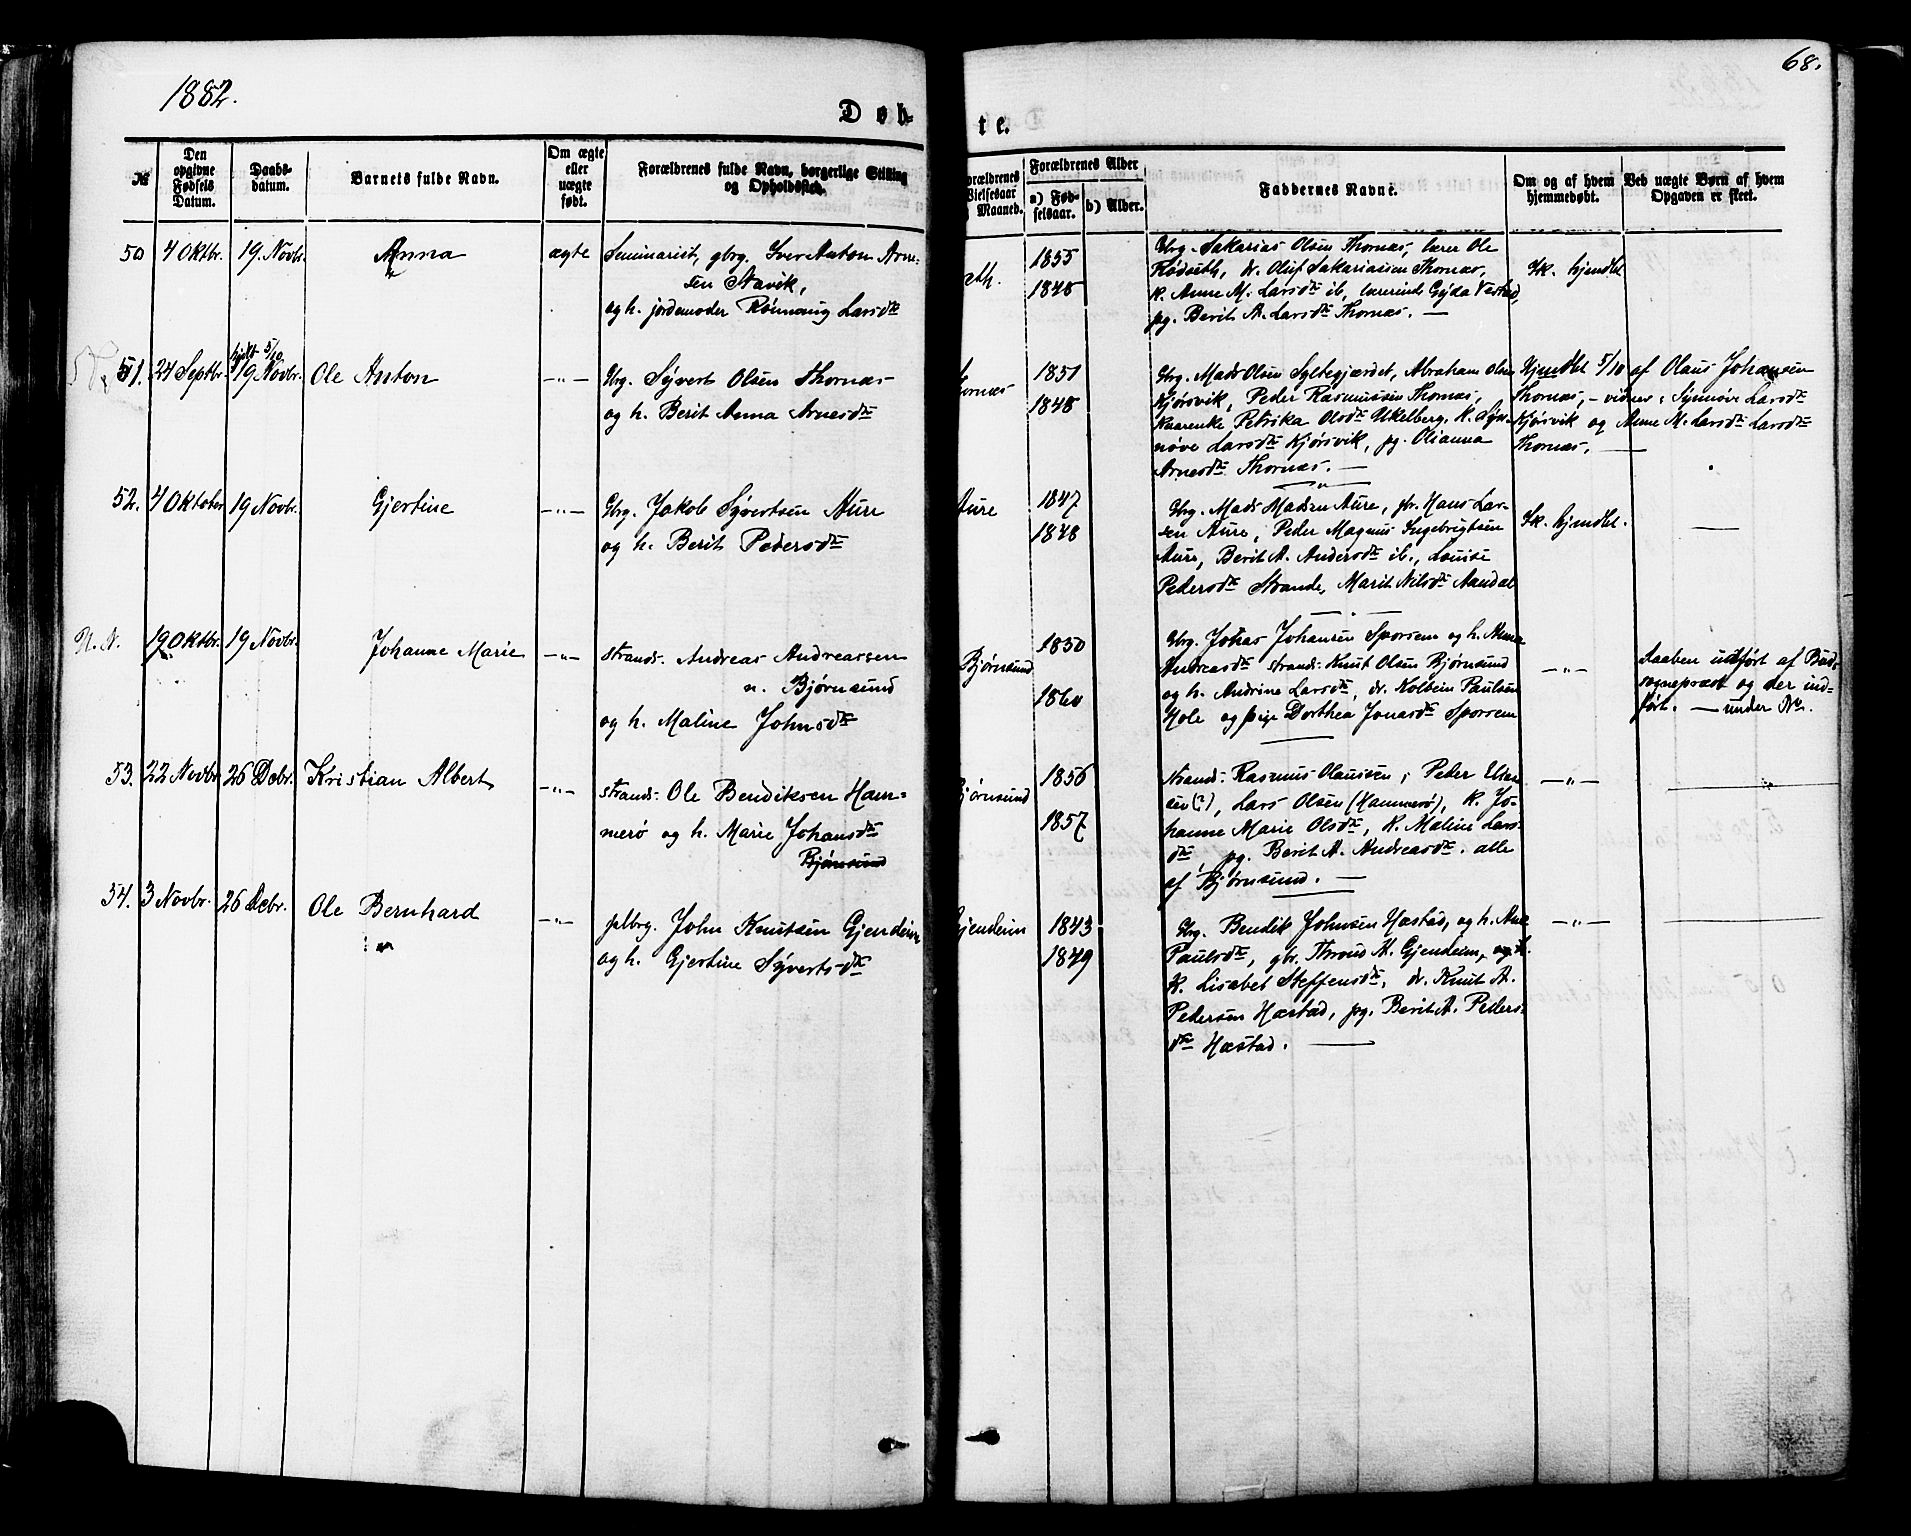 1882.
68.
Døb-
te.
№
Den opgivne Fødsels Datum.
Daabs-datum.
Barnets fulde Navn.
Om ægte eller uægte født.
Forældrenes fulde Navn, borgerlige Stilling og Opholdssted.
Forældrenes Vielsesaar Maaned.
Forældrenes Alder
a) Fødselsaar.
b) Alder.
Faddernes Navne.
Om og af hvem hjemmedøbt.
Ved uægte Børn af hvem Opgaven er skeet.
50 4 Oktbr. 19. Novbr. Anna ægte
Seminarist, gbrg. Iver Anton Arne-
sen Stavik,
og h. jordemoder Rønnaug Larsdtr
1855
1848
Gbrg. Sakarias Olsen Thornæs, lærer Ole
Rødseth, dr. Oluf Sakariassen Thornæs,
k. Anne M. Larsdtr ib, lærerinde Gyda Vestad,
pg. Berit A. Larsdtr Thornæs. —
Ik. hjemdbt
51. 24 Septbr. hjdbt 5/10 19 Novbr. Ole Anton —"—
Gbrg. Syvert Olsen Thornæs
og h. Berit Anna Arnesdtr
Thornæs
1851
1848
Gbrg. Mads Olsen Syltegjærdet, Abraham Olsen
Kjørsvik, Peder Rasmussen Thornæs,
Kaarenke Petrika Olsdtr Ukelberg, k. Syn-
nøve Larsdtr Kjørsvik, pg. Olianna
Arnesdtr Thornæs. —
Hjemdbt 5/10 af Olaus Johansen
Thornæs, – vidner: Synnøve Larsdtr
Kjørsvik og Anne M. Larsdtr Larsdtr
Thornæs. —
52. 4 Oktober 19 Novbr. Gjertine —"—
Gbrg. Jakob Syvertsen Aure
og h. Berit Pedersdtr
Aure
1847
1848
Gbrg. Mads Madsen Aure, Hans Lar-
sen Aure, Peder Magnus Ingebrigtsen
Aure, Berit A. Andersdtr ib., Louise
Pedersdtr Strande, Marit Nilsdtr Aandal
Ik. hjemdbt. —
U. N. 19 Oktbr. 19 Novbr. Johanne Marie —"—
strands. Andreas Andreassen
n. Bjørnsund
og h. Maline Johnsdtr
Bjørnsund
1850
1860
Gbrg. Johas Johansen Sporsem og h. Anna
Andreasdtr strands: Knut Olsen Bjørnsund
og h. Andrine Larsdtr, dr. Kolbein Paulsen
Hole og pige Dorthea Jonasdtr Sporsem
—"—
Daaben udført af Bud
sognepræst og der ind-
ført. — under No.
53. 22 Novbr. 26 Dcbr. Kristian Albert —"—
strands: Ole Bendiksen Ham-
merø og h. Marie Johansdtr
Bjørnsund
Bjørnsund
1856
1857
strands: Rasmus Olaussen, Peder Elias
sen (?), Lars Olsen (Hammerø), k. Jo-
hanne Marie Olsdtr, k. Maline Lars-
dtr, pg. Berit A. Andreasdtr. alle
af Bjørnsund. —
—"—
54. 3 Novbr. 26 Dcbr. Ole Bernhard —"—
John Knutsen Gjendeim
og h. Gjertine Syvertsdtr
Gjendeim
1843
1849
Gbrg. Bendik Johnsen Hæstad, og h. Ane
Paulsdtr, gbr. Thrond K. Gjendeim,
k. Lisabet Steffensdtr, dr. Knut A.
Pedersen Hæstad, pg. Berit A. Peders-
dtr Hæstad. —
—"—